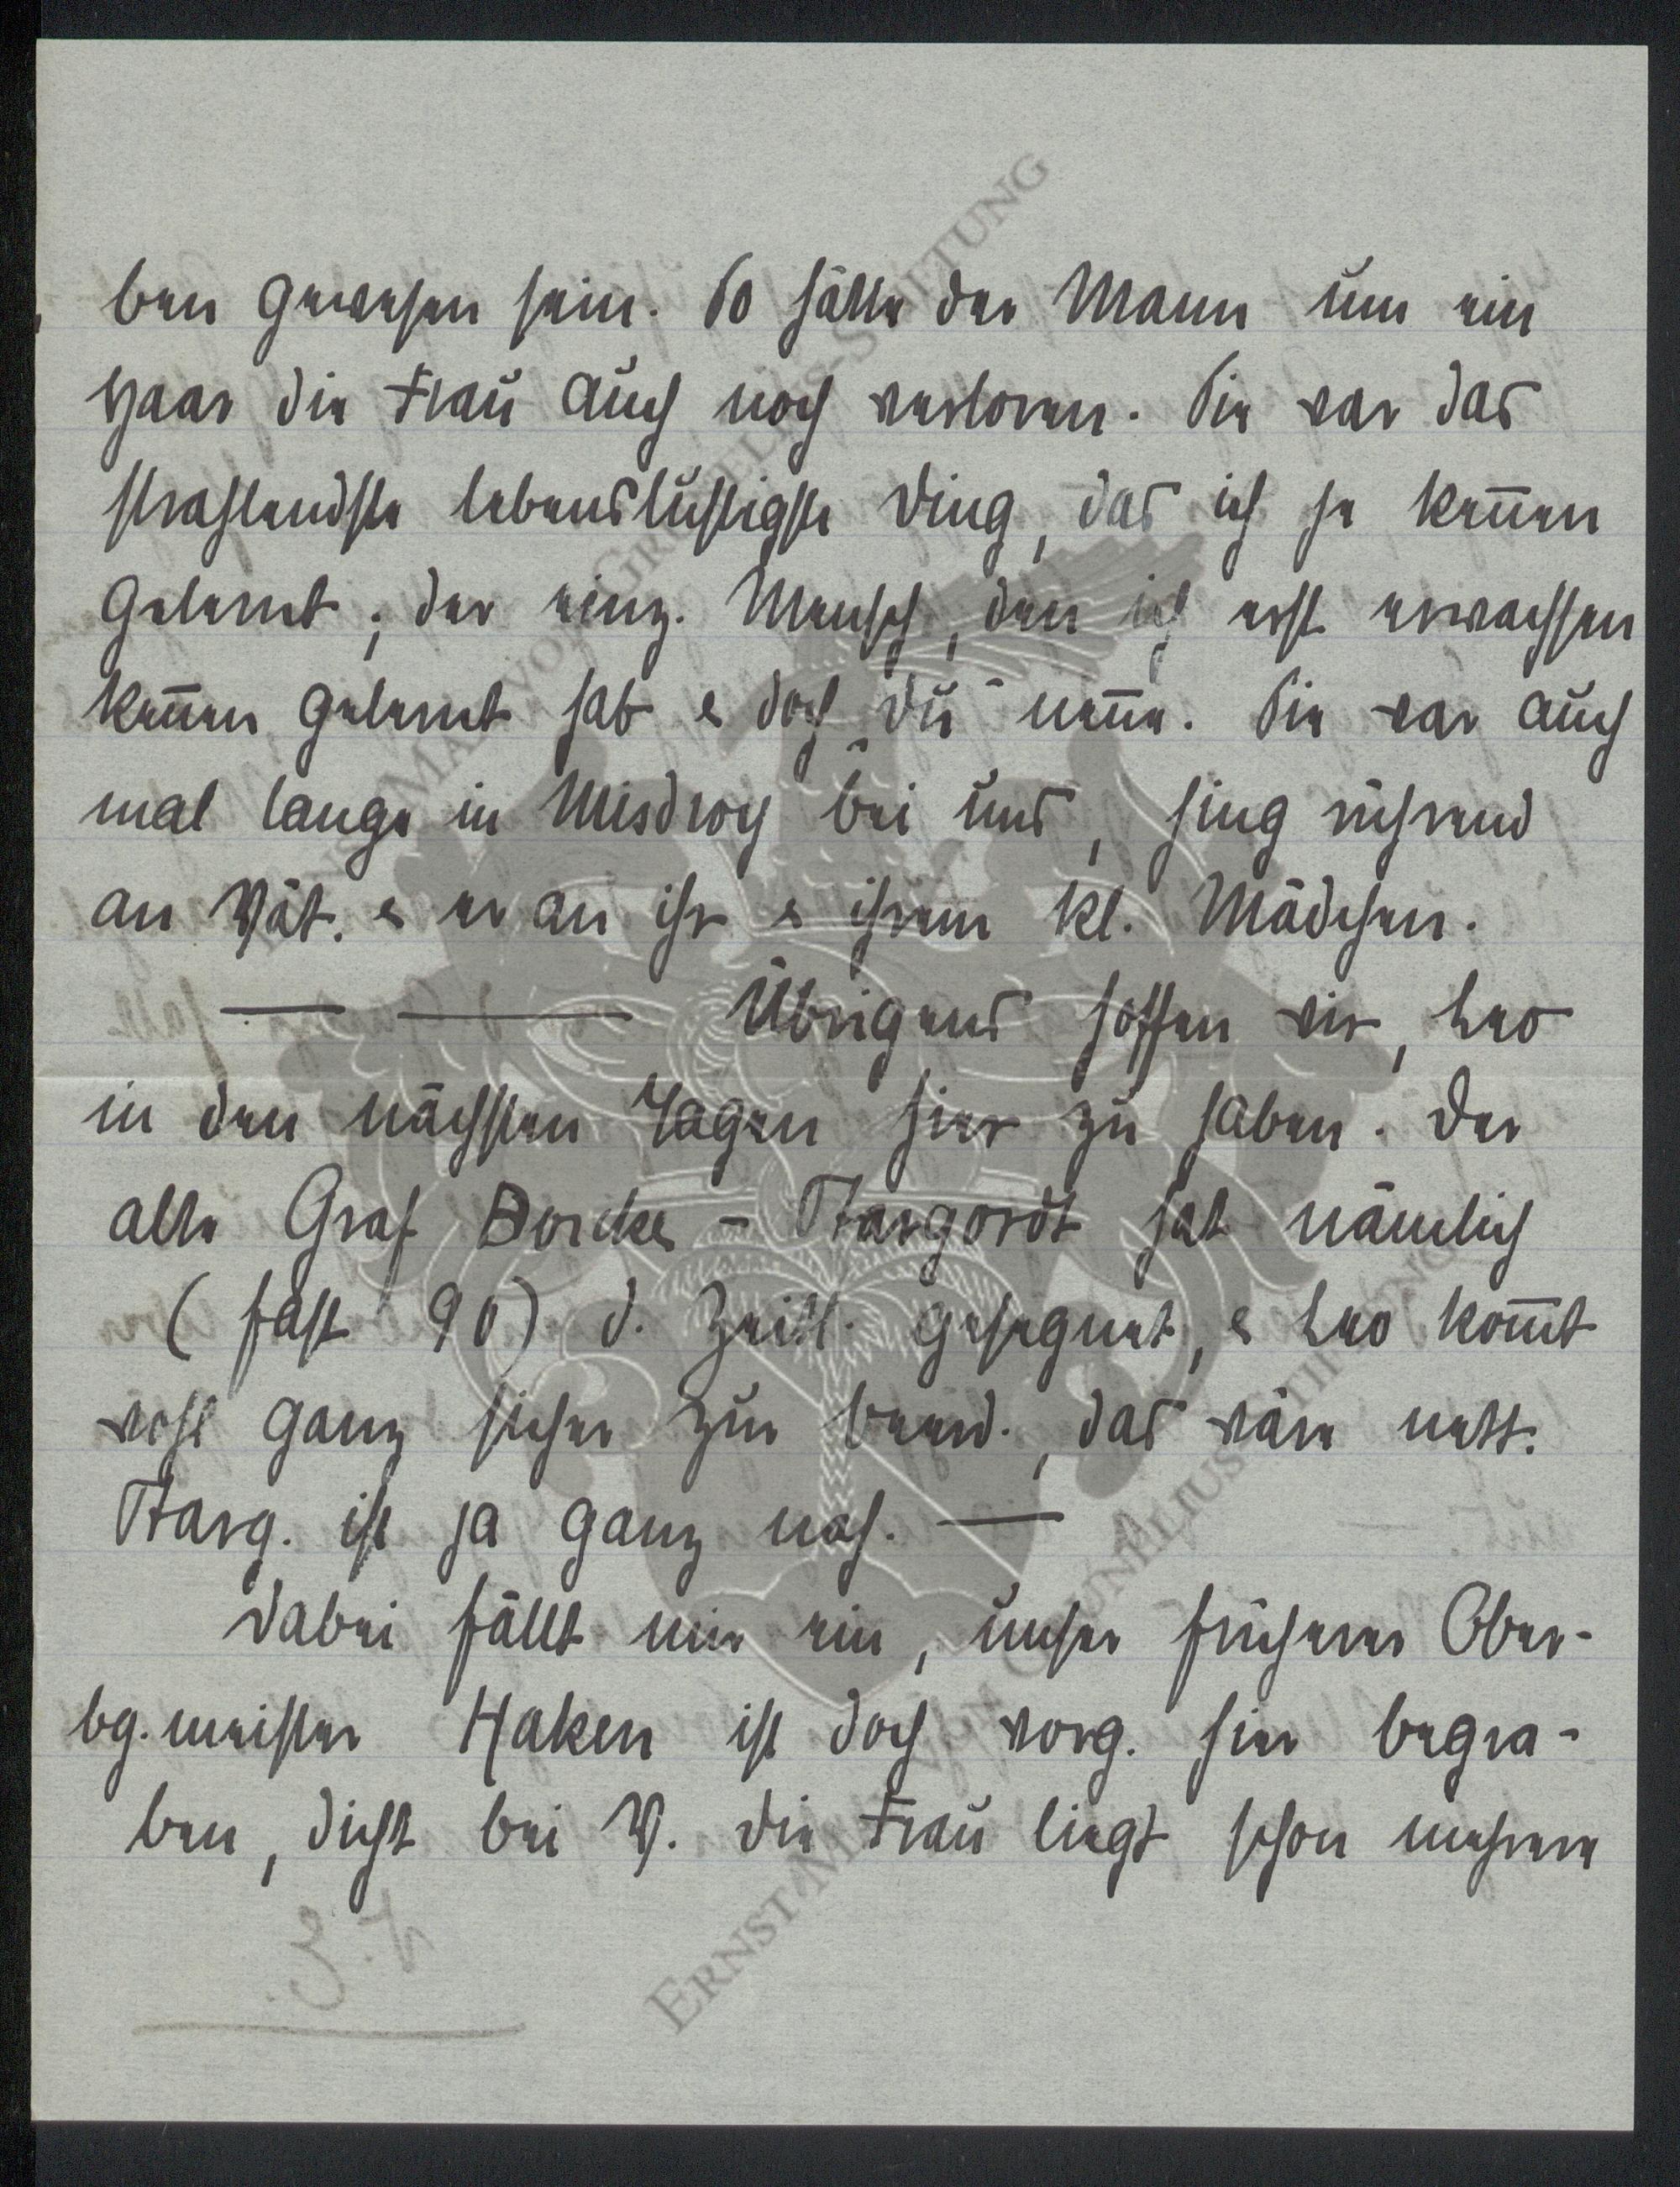 ben gewesen sein. So hätte der Mann um ein
Haar die Frau auch noch verloren. Sie war das
strahlendste lebenslustigste Ding, das ich je kennen
gelernt; der einz. Mensch, den ich erst erwachsen
kennen gelernt hab & doch "Du" nenne. Sie war auch
mal lange in Misdroy bei uns, hing rührend
an Vät. & er an ihr & ihrem kl. Mädchen.
— — Übrigens hoffen wir, Leo
in den nächsten Tagen hier zu haben. Der
alte Graf Borcke - Stargordt hat nämlich
(fast 90) d. Zeitl. gesegnet, & Leo kommt
wohl ganz sicher zur Beerd., das wäre nett.
Starg. ist ja ganz nah. —
Dabei fällt mir ein, unser früherer Ober-
bg.meister Haken ist doch vorg. hier begra-
ben, dicht bei V. Die Frau liegt schon mehrere
ERNST-MAX VON GRUNELIUS-STIFTUNG
ERNST-MAX VON GRUNELIUS-STIFTUNG